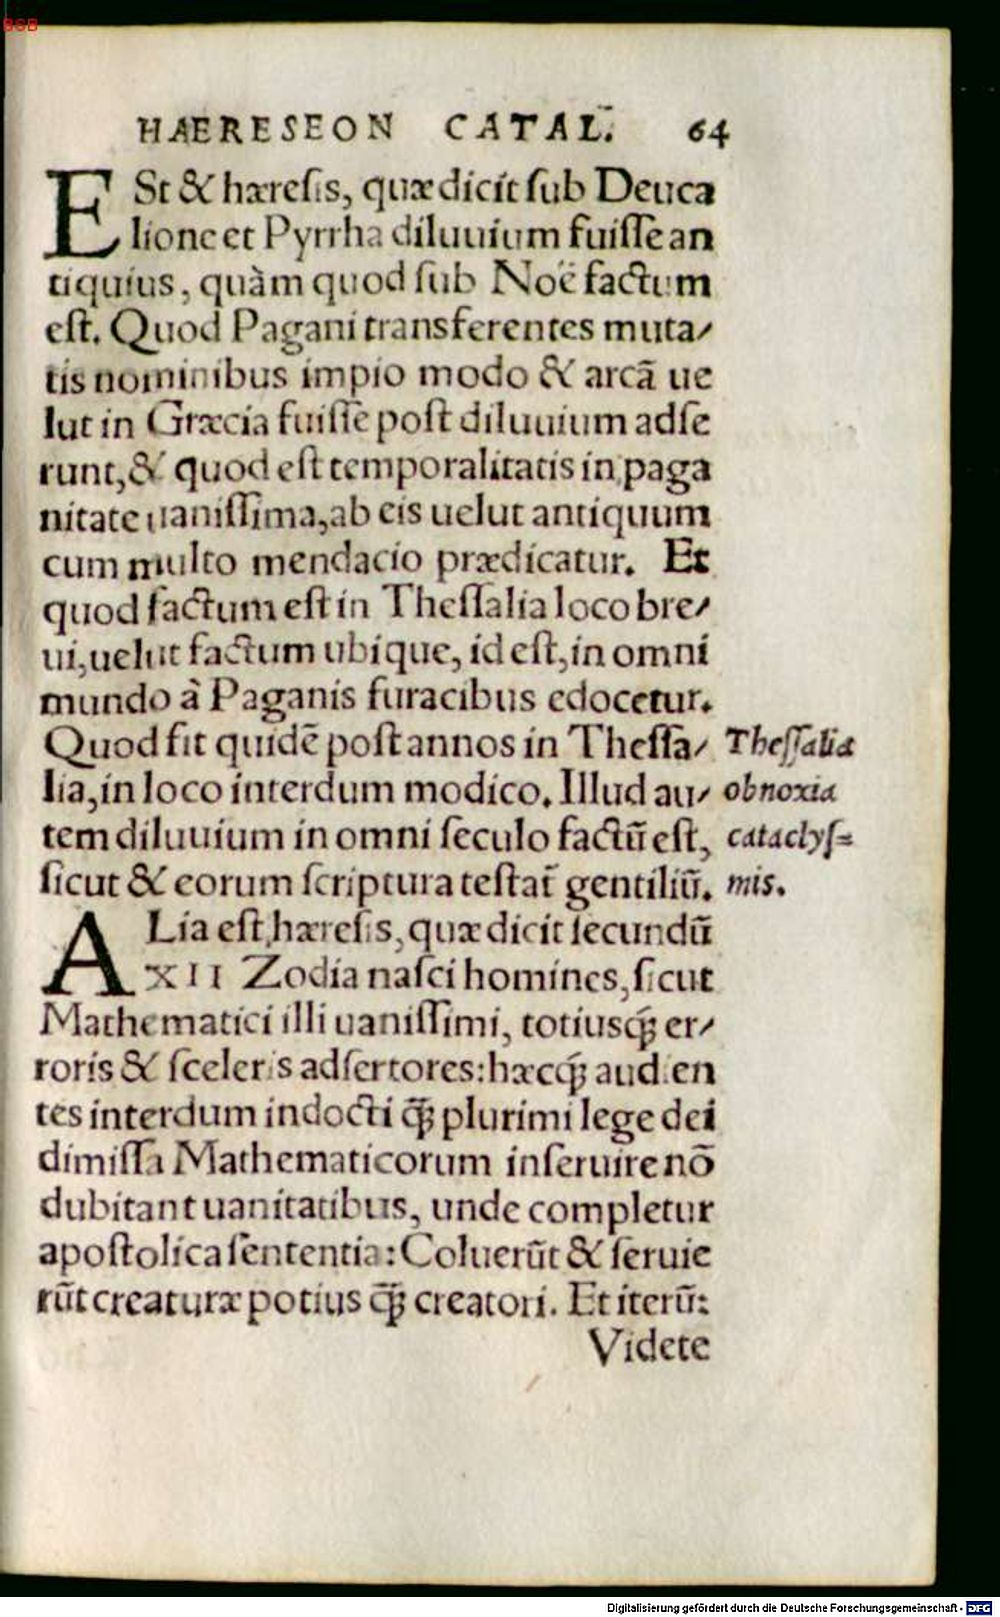 BSB
HAERESEON CATAL. 64
ESt & hæresis, quæ dicit sub Deuca
lione et Pyrrha diluuium fuisse an
tiquius, quàm quod sub Noë factum
est. Quod Pagani transferentes muta⸗
tis nominibus impio modo & arcã ue
lut in Græcia fuisse post diluuium adse
runt, & quod est temporalitatis in paga
nitate uanissima, ab eis uelut antiquum
cum multo mendacio prædicatur. Et
quod factum est in Thessalia loco bre⸗
ui, uelut factum ubique, id est, in omni
mundo à Paganis furacibus edocetur.
Quod fit quidẽ post annos in Thessa⸗
Thessalia
lia, in loco interdum modico. Illud au⸗
obnoxia
tem diluuium in omni seculo factũ est,
cataclys=
sicut & eorum scriptura testat̃ gentiliũ.
mis.
ALia est hæresis, quæ dicit secundũ
XII Zodia nasci homines, sicut
Mathematici illi uanissimi, totiusq́ꝫ er⸗
roris & sceleris adsertores: hæcq́ꝫ audien
tes interdum indocti q̃ꝫ plurimi lege dei
dimissa Mathematicorum inseruire nõ
dubitant uanitatibus, unde completur
apostolica sententia: Coluerũt & seruie
rũt creaturæ potius q̃ꝫ creatori. Et iterũ:
Videte
Digitalisierung gefördert durch die Deutsche Forschungsgemeinschaft - DFG